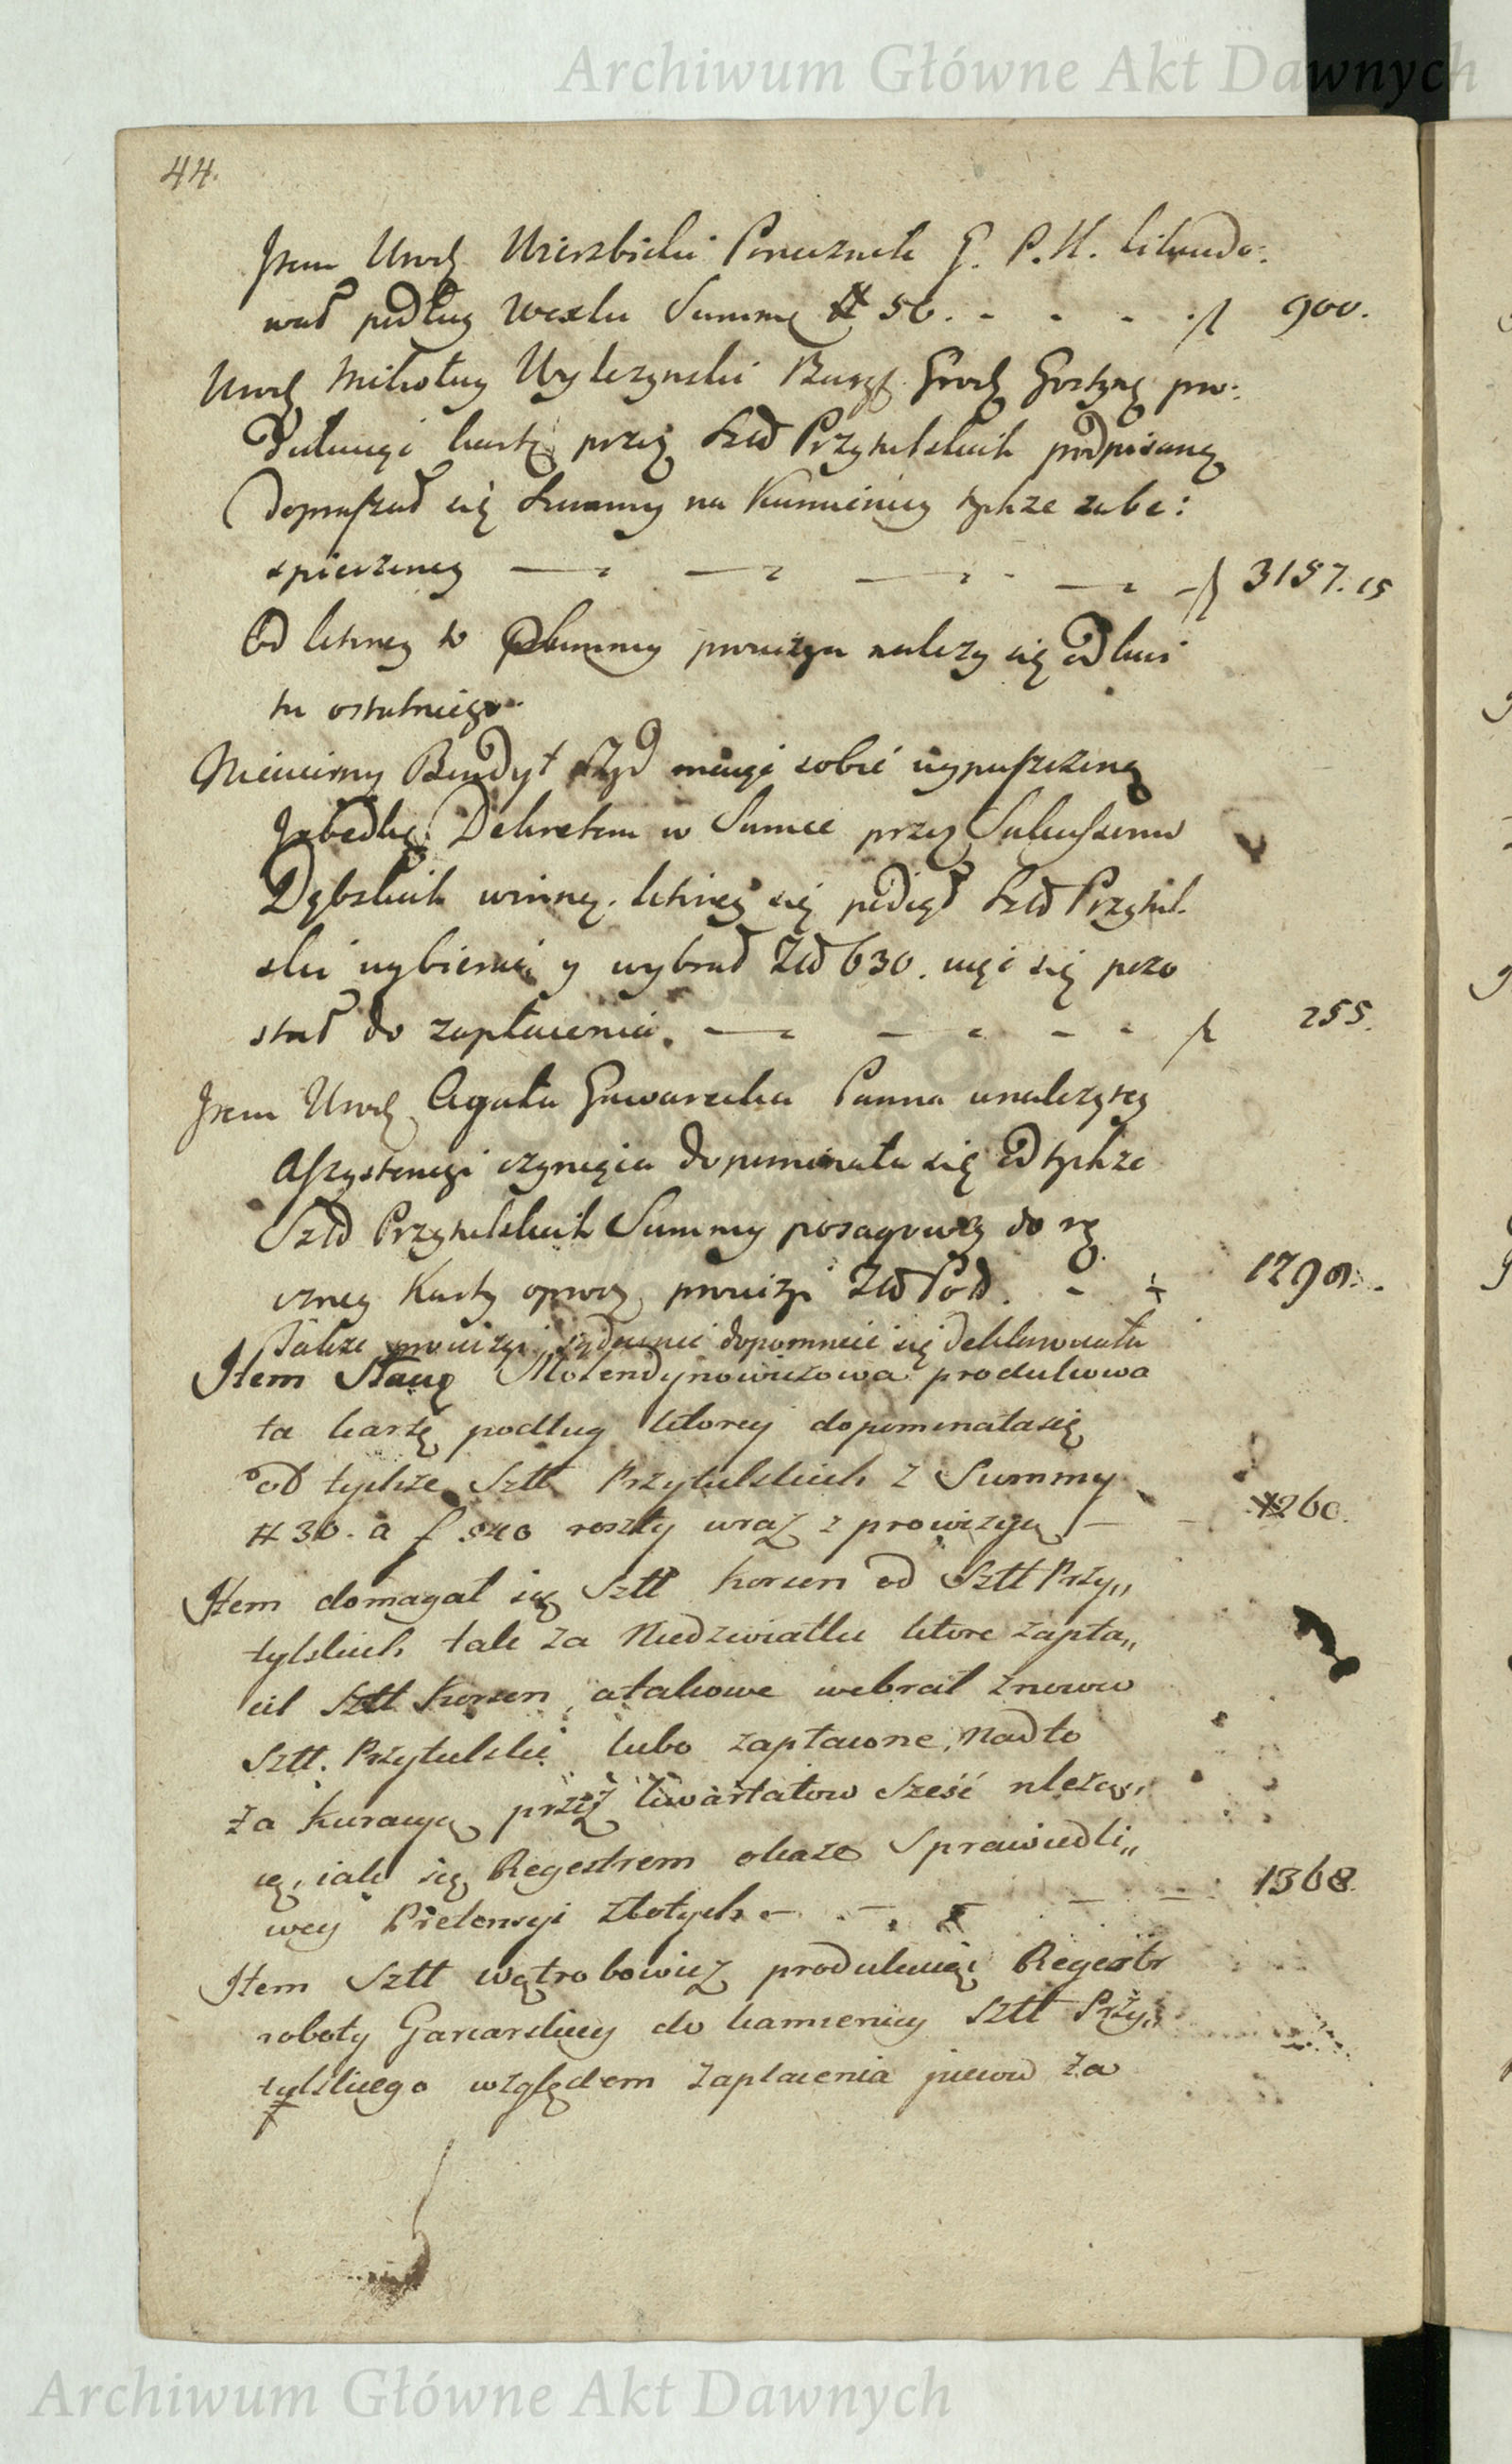 Archiwum Główne Akt Dawnych
44.
Item Urodz Wierzbicki Porucznik G. P. K. likwido:
wał podług Wexlu Summę # 50. - - - - fl 900.
Urodz Mikołay Wylczynski Burgf. Grodz Gostyng pro:
dukuiąc kartę przez Szld Przytulskich podpisaną
dopraszał się Summy na Kamienicy tychże zabe:
spieczoney — — — — fl 3157. 15
Od ktorey to Summy prowizya należy się od kwi
tu ostatniego.
Niewierny Bendyt Żyd maiąc sobie wypuszczoną
Dekretem w Sumie przez Sukcessorow
Dębskich winney. ktorey się podiął Szld Przytul
ski wybierać y wybrał Złd 630. więc się pozo
stał do zapłacenia. — - - - - fl 255.
Item Urodz Agata Gawarecka Panna w należytey
Aszystencyi czyniąca dopominała się od tychże
Szld Przytulskich Summy posagowey do rę
czney Karty oprocz prowizyi Złd Pol. - 1290.
Także prowizyi dopomnieć się deklarowała
Item Sławę Molendynowiczowa produkowa
ła kartę podług ktorey dopominała się
od tychże Sztt Przytulskich z Summy
# 30. a f 540 reszty wraz z prowizyą — - 260.
Item domagał się Sztt Korsen od Sztt Przy„
tylskich tak za Niedzwiatki ktore zapła„
cił Sztt Korsen, a takowe webrał znowu
Sztt. Przytulski lubo zapłacone, nadto
za kuracyą przez kwartałow sześć nleżą„
cą, iak się Regestrem okaże Sprawiedli„
wey Pretensyi Złotych - - - - — 1368
Item Sztt Wątrobowicz produkuiąc Regestr
roboty Garcarskiey do kamienicy Sztt Przy„
tylskiego względem zapłacenia piecow za
Archiwum Główne Akt Dawnych